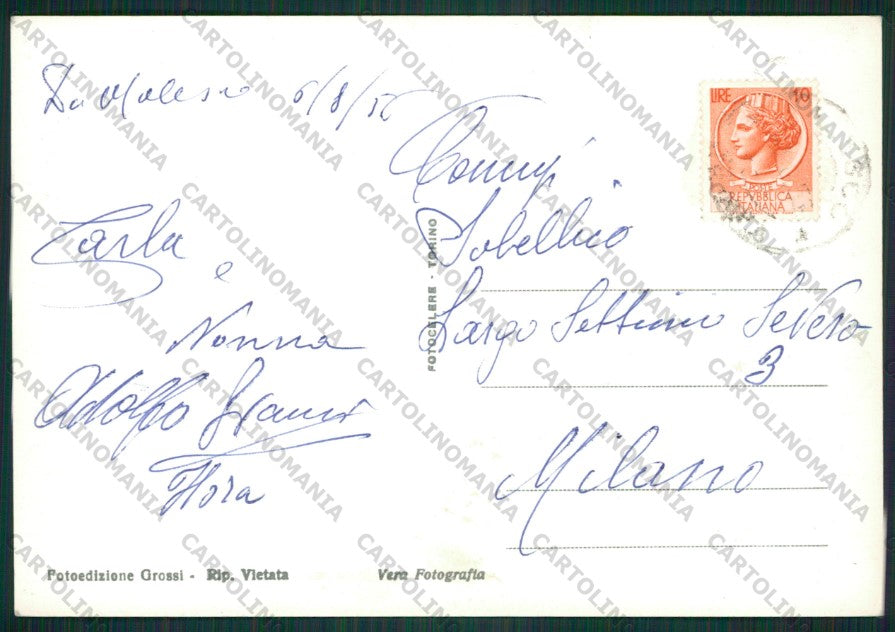 Da Valesio 6/8/56
Carla
e
Nonna
Adolfo
Flora
Fotoedizione Grossi - Rip. Vietata
Vera Fotografia
FOTOCELERE - TORINO
LIRE 10
POSTE
REPVBBLICA
ITALIANA
Sobellico
Largo Settimio Severo
3
Milano
CARTOLINOMANIA